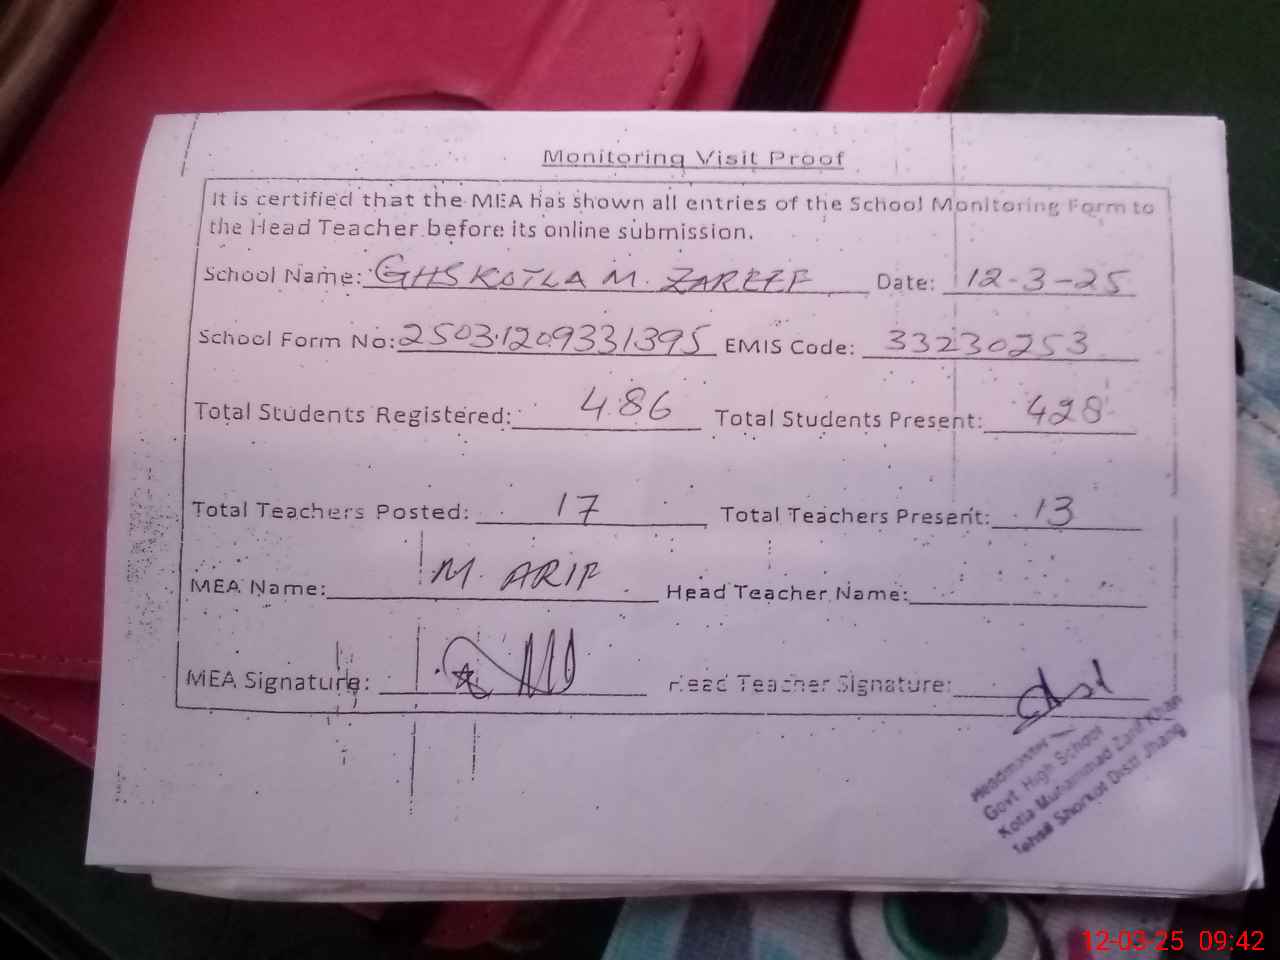 Monitoring Visit Proof
It is certified that the MEA has shown all entries of the School Monitoring Form to
the Head Teacher before its online submission.
School Name: GHS KOTLA M. ZAREEF Date: 12-3-25
School Form No: 25031209331395 EMIS Code: 33230253
Total Students Registered: 486 Total Students Present: 428
Total Teachers Posted: 17 Total Teachers Present: 13
MEA Name: M. ARIF Head Teacher Name:
MEA Signature: Head Teacher Signature:
Headmaster
Govt. High School
Kotla Muhammad Zarif Khan
Tehsil Shorkot Distt Jhang
12-03-25 09:42